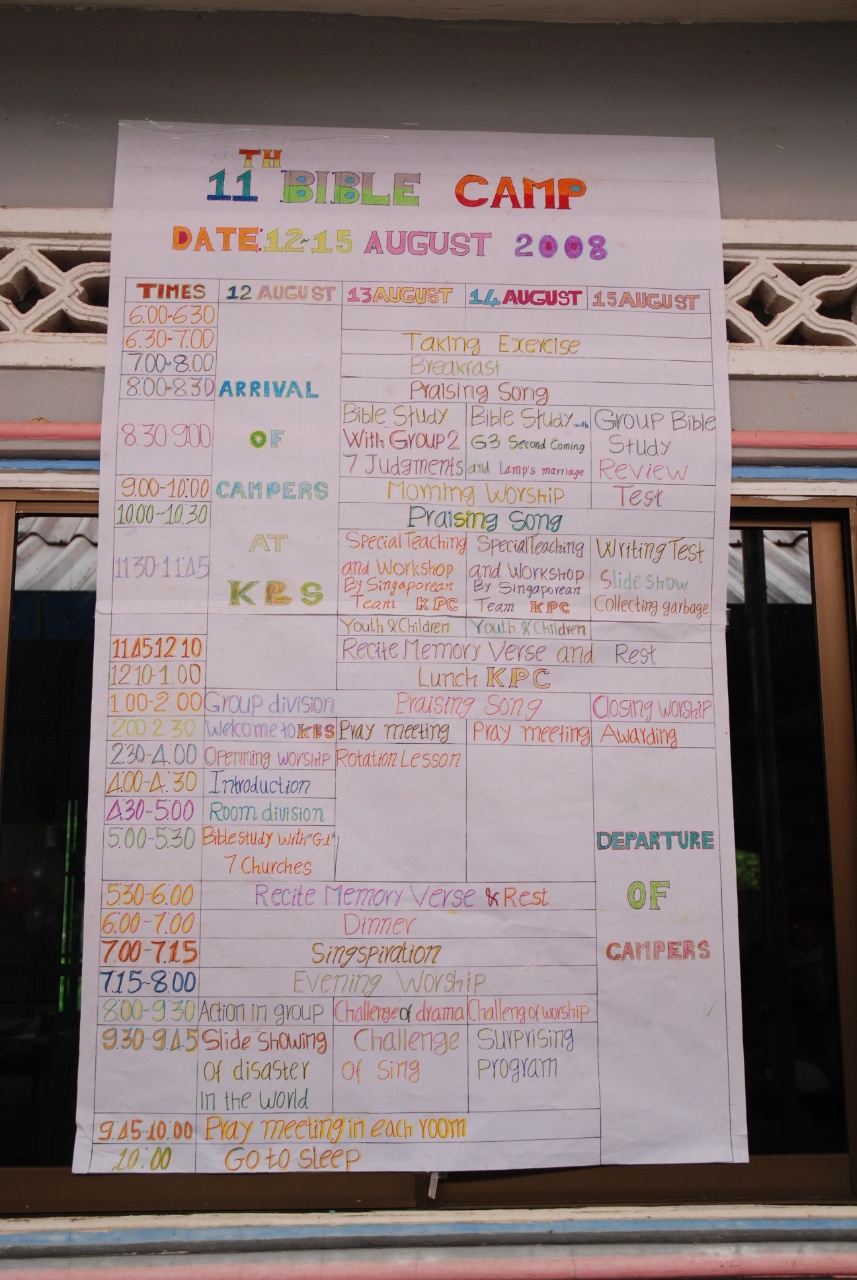 11TH BIBLE CAMP
DATE:12-15 AUGUST 2008
TIMES 12 AUGUST 13 AUGUST 14 AUGUST 15 AUGUST
6.00-6.30
6.30-7.00 Taking Exercise
7.00-8.00 Breakfast
8.00-8.30 Praising Song
ARRIVAL
OF
CAMPERS
AT
KBS
8.30-9.00
Bible Study
With Group 2
7 Judgments
Bible Study with
G3 Second Coming
and Lamp's marriage
Group Bible
Study
Review
Test
9.00-10.00 Morning Worship
10.00-10.30 Praising Song
11.30-11.45
Special Teaching
and Workshop
By Singaporean
Team KPC
Youth & Children
Special Teaching
and Workshop
By Singaporean
Team KPC
Youth & Children
Writing Test
Slide Show
Collecting garbage
11.45-12.10 Recite Memory Verse and Rest
12.10-1.00 Lunch KPC
1.00-2.00 Group division Praising Song Closing worship
2.00-2.30 Welcome to KBS Pray meeting Pray meeting Awarding
2.30-4.00 Openning worship Rotation Lesson
4.00-4.30 Introduction
4.30-5.00 Room division
5.00-5.30 Bible study With "G-1"
7 Churches
DEPARTURE
OF
CAMPERS
5.30-6.00 Recite Memory Verse & Rest
6.00-7.00 Dinner
7.00-7.15 Singspiration
7.15-8.00 Evening Worship
8.00-9.30 Action in group Challenge of drama Challeng of worship
9.30-9.45
Slide Showing
of disaster
in the world
Challenge
of Sing
Surprising
program
9.45-10.00 Pray meeting in each room
10:00 Go to sleep